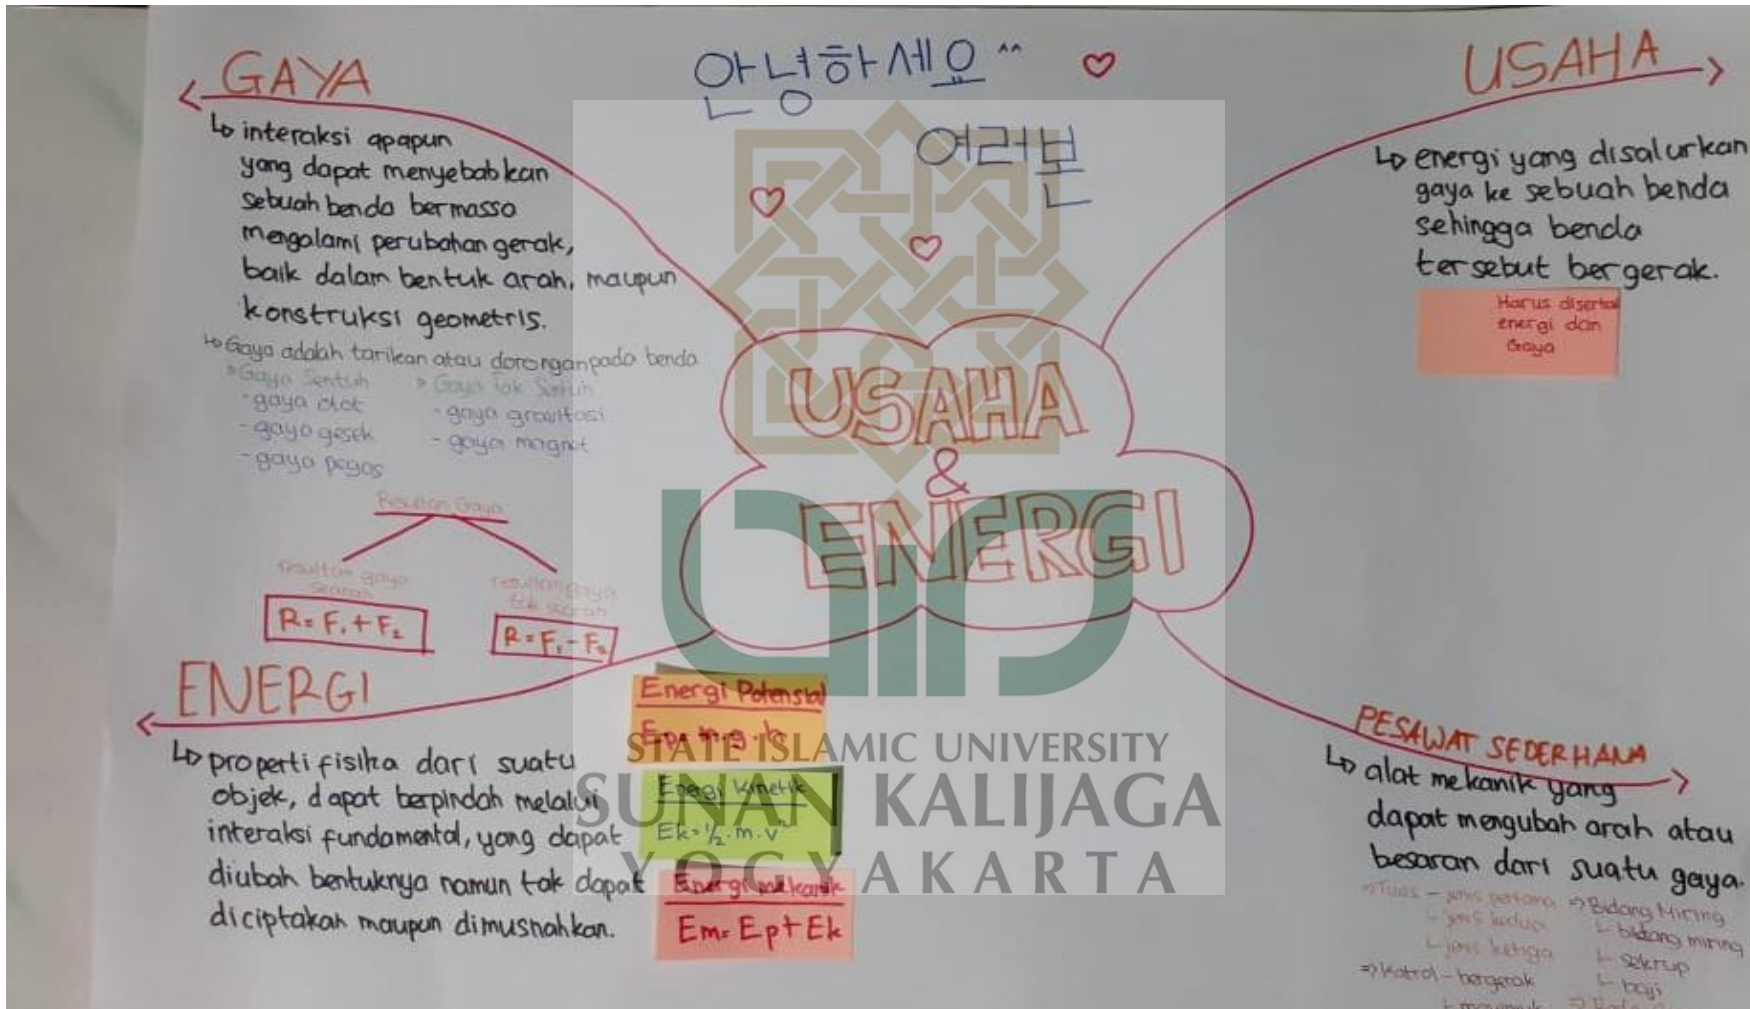 안녕하세요 ^^
여러본
GAYA
↳ interaksi apapun
yang dapat menyebabkan
sebuah benda bermassa
mengalami perubahan gerak,
baik dalam bentuk arah, maupun
konstruksi geometris.
↳ Gaya adalah tarikan atau dorongan pada benda
» Gaya Sentuh
- gaya otot
- gaya gesek
- gaya pegas
» Gaya Tak Sentuh
- gaya gravitasi
- gaya magnet
Resultan Gaya
resultan gaya
searah
R = F₁ + F₂
resultan gaya
tak searah
R = F₁ - F₂
USAHA
↳ energi yang disalurkan
gaya ke sebuah benda
sehingga benda
tersebut bergerak.
Harus disertai
energi dan
Gaya
USAHA
&
ENERGI
ENERGI
↳ properti fisika dari suatu
objek, dapat berpindah melalui
interaksi fundamental, yang dapat
diubah bentuknya namun tak dapat
diciptakan maupun dimusnahkan.
Energi Potensial
Ep = m.g.h
Energi Kinetik
Ek = ½.m.v²
Energi mekanik
Em = Ep + Ek
PESAWAT SEDERHANA
↳ alat mekanik yang
dapat mengubah arah atau
besaran dari suatu gaya.
⇒ Tuas - jenis pertama
↳ jenis kedua
↳ jenis ketiga
⇒ Katrol - bergerak
⇒ Bidang Miring
↳ bidang miring
↳ sekrup
↳ baji
STATE ISLAMIC UNIVERSITY
SUNAN KALIJAGA
YOGYAKARTA